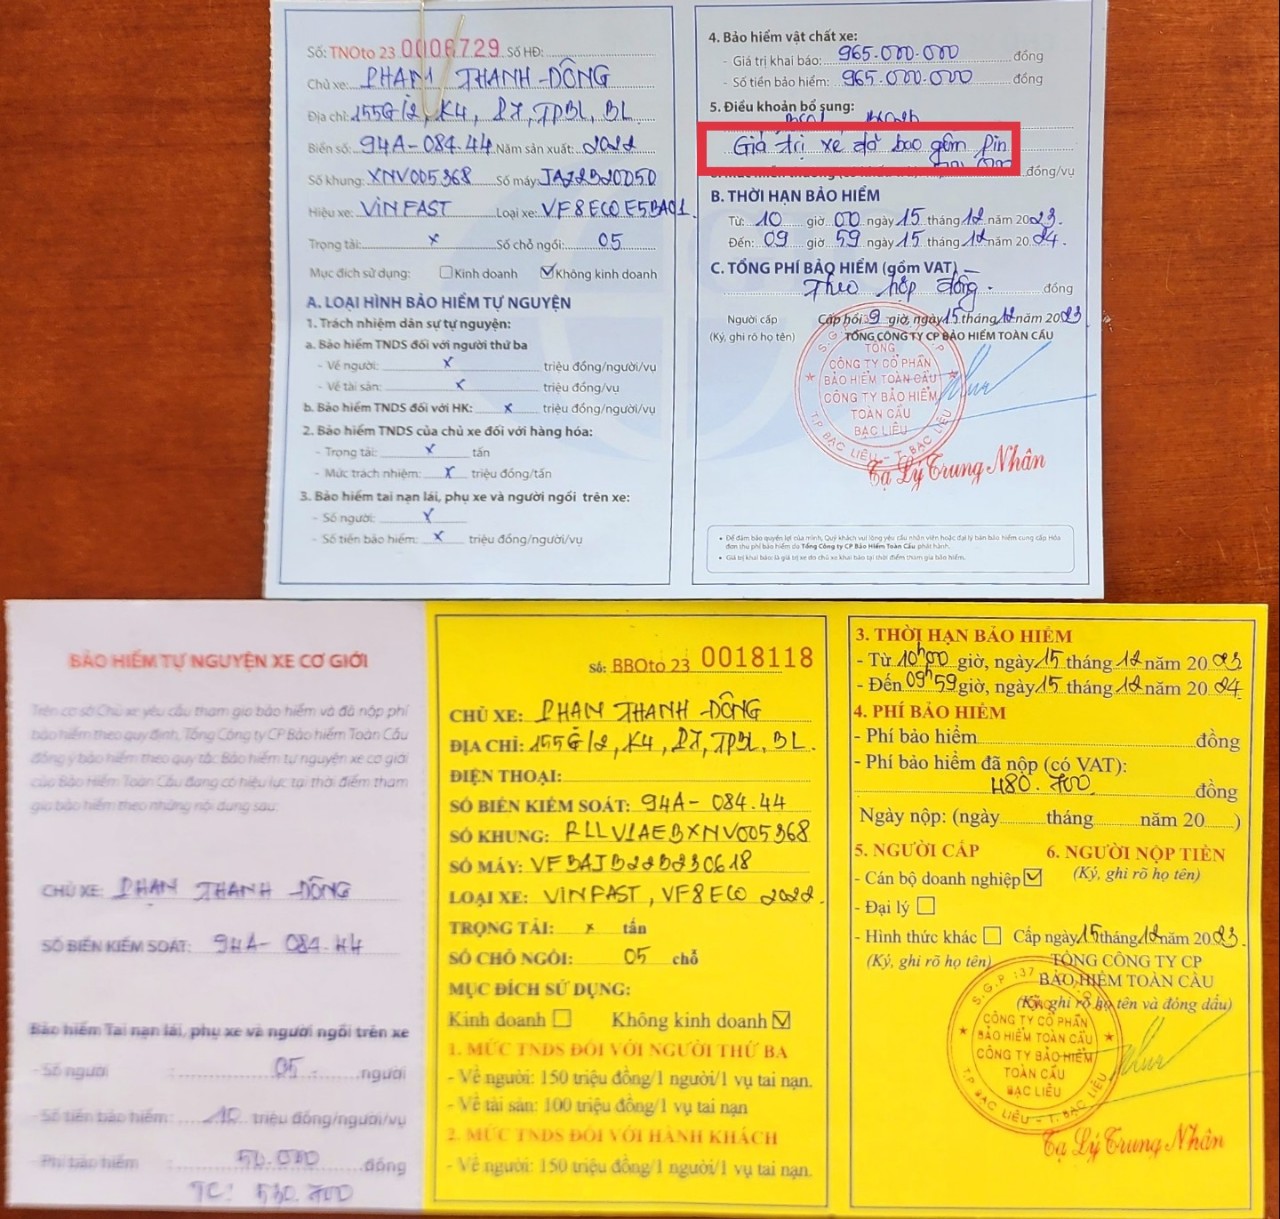 Số: TNOto 23 0006729 Số HĐ:
Chủ xe: PHẠM THANH ĐÔNG
Địa chỉ: 155G/2, K4, P7, TPBL, BL
Biển số: 94A-084.44 Năm sản xuất: 2022
Số khung: XNV005368 Số máy: JA22B20050
Hiệu xe: VINFAST Loại xe: VF8ECO E5BA01
Trọng tải: x Số chỗ ngồi: 05
Mục đích sử dụng: Kinh doanh Không kinh doanh
A. LOẠI HÌNH BẢO HIỂM TỰ NGUYỆN
1. Trách nhiệm dân sự tự nguyện:
a. Bảo hiểm TNDS đối với người thứ ba
- Về người: x triệu đồng/người/vụ
- Về tài sản: x triệu đồng/vụ
b. Bảo hiểm TNDS đối với HK: x triệu đồng/người/vụ
2. Bảo hiểm TNDS của chủ xe đối với hàng hóa:
- Trọng tải: x tấn
- Mức trách nhiệm: x triệu đồng/tấn
3. Bảo hiểm tai nạn lái, phụ xe và người ngồi trên xe:
- Số người: x
- Số tiền bảo hiểm: x triệu đồng/người/vụ
4. Bảo hiểm vật chất xe:
- Giá trị khai báo: 965.000.000 đồng
- Số tiền bảo hiểm: 965.000.000 đồng
5. Điều khoản bổ sung:
Giá trị xe đã bao gồm pin
đồng/vụ
B. THỜI HẠN BẢO HIỂM
Từ: 10 giờ 00 ngày 15 tháng 12 năm 2023.
Đến: 09 giờ 59 ngày 15 tháng 12 năm 2024.
C. TỔNG PHÍ BẢO HIỂM (gồm VAT)
Theo hợp đồng. đồng
Người cấp Cấp hồi 9 giờ, ngày 15 tháng 12 năm 2023
(Ký, ghi rõ họ tên) TỔNG CÔNG TY CP BẢO HIỂM TOÀN CẦU
TỔNG
CÔNG TY CỔ PHẦN
BẢO HIỂM TOÀN CẦU
CÔNG TY BẢO HIỂM
TOÀN CẦU
BẠC LIÊU
T.P BẠC LIÊU - T. BẠC LIÊU
Tạ Lý Trung Nhân
• Để đảm bảo quyền lợi của mình, Quý khách vui lòng yêu cầu nhân viên hoặc đại lý bán bảo hiểm cung cấp Hóa
đơn thu phí bảo hiểm do Tổng Công ty CP Bảo Hiểm Toàn Cầu phát hành.
• Giá trị khai báo là giá trị xe do chủ xe khai báo tại thời điểm tham gia bảo hiểm.
BẢO HIỂM TỰ NGUYỆN XE CƠ GIỚI
Trên cơ sở Chủ xe yêu cầu tham gia bảo hiểm và đã nộp phí
bảo hiểm theo quy định, Tổng Công ty CP Bảo Hiểm Toàn Cầu
đồng ý bảo hiểm theo quy tắc Bảo hiểm tự nguyện xe cơ giới
của Bảo Hiểm Toàn Cầu đang có hiệu lực tại thời điểm tham
gia bảo hiểm theo những nội dung sau:
CHỦ XE: PHẠM THANH ĐÔNG
SỐ BIỂN KIỂM SOÁT: 94A-084.44
Bảo hiểm Tai nạn lái, phụ xe và người ngồi trên xe
- Số người : 05 người
- Số tiền bảo hiểm: 10 triệu đồng/người/vụ
- Phí bảo hiểm : 50.000 đồng
TC: 530.700
Số: BBOto 23 0018118
CHỦ XE: PHẠM THANH ĐÔNG
ĐỊA CHỈ: 155G/2, K4, P7, TPBL, BL.
ĐIỆN THOẠI:
SỐ BIỂN KIỂM SOÁT: 94A-084.44
SỐ KHUNG: RLLV1AEBXNV005368
SỐ MÁY: VFBAJB22B230618
LOẠI XE: VINFAST, VF8 ECO 2022.
TRỌNG TẢI: x tấn
SỐ CHỖ NGỒI: 05 chỗ
MỤC ĐÍCH SỬ DỤNG:
Kinh doanh Không kinh doanh
1. MỨC TNDS ĐỐI VỚI NGƯỜI THỨ BA
- Về người: 150 triệu đồng/1 người/1 vụ tai nạn.
- Về tài sản: 100 triệu đồng/1 vụ tai nạn
2. MỨC TNDS ĐỐI VỚI HÀNH KHÁCH
- Về người: 150 triệu đồng/1 người/1 vụ tai nạn.
3. THỜI HẠN BẢO HIỂM
- Từ 10h00 giờ, ngày 15 tháng 12 năm 2023
- Đến 09h59 giờ, ngày 15 tháng 12 năm 2024.
4. PHÍ BẢO HIỂM
- Phí bảo hiểm đồng
- Phí bảo hiểm đã nộp (có VAT):
480.700 đồng
Ngày nộp: (ngày tháng năm 20 )
5. NGƯỜI CẤP 6. NGƯỜI NỘP TIỀN
- Cán bộ doanh nghiệp (Ký, ghi rõ họ tên)
- Đại lý
- Hình thức khác Cấp ngày 15 tháng 12 năm 2023.
(Ký, ghi rõ họ tên) TỔNG CÔNG TY CP
BẢO HIỂM TOÀN CẦU
(Ký, ghi rõ họ tên và đóng dấu)
TỔNG
CÔNG TY CỔ PHẦN
BẢO HIỂM TOÀN CẦU
CÔNG TY BẢO HIỂM
TOÀN CẦU
BẠC LIÊU
T.P BẠC LIÊU - T. BẠC LIÊU
Tạ Lý Trung Nhân